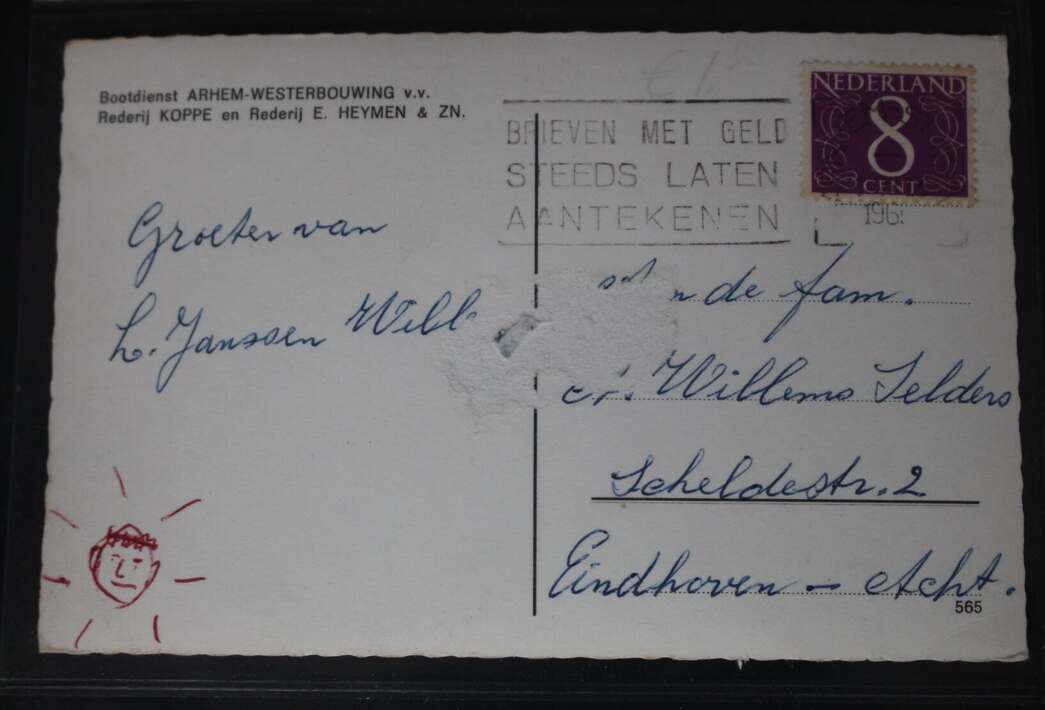 Bootdienst ARHEM-WESTERBOUWING v.v.
Rederij KOPPE en Rederij E. HEYMEN & ZN.
€1
BRIEVEN MET GELD
STEEDS LATEN
AANTEKENEN
NEDERLAND
8
CENT
196
Groeten van
L. Janssen
de fam.
Willems Selders
Scheldestr. 2
Eindhoven - Acht.
565